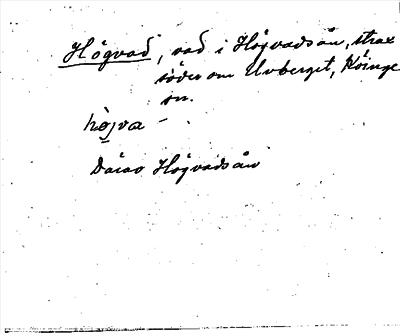 Högvad, vad i Högvadsån, strax
söder om Uvberget, Köinge
sn.
hògva -
Därav Högvadsån